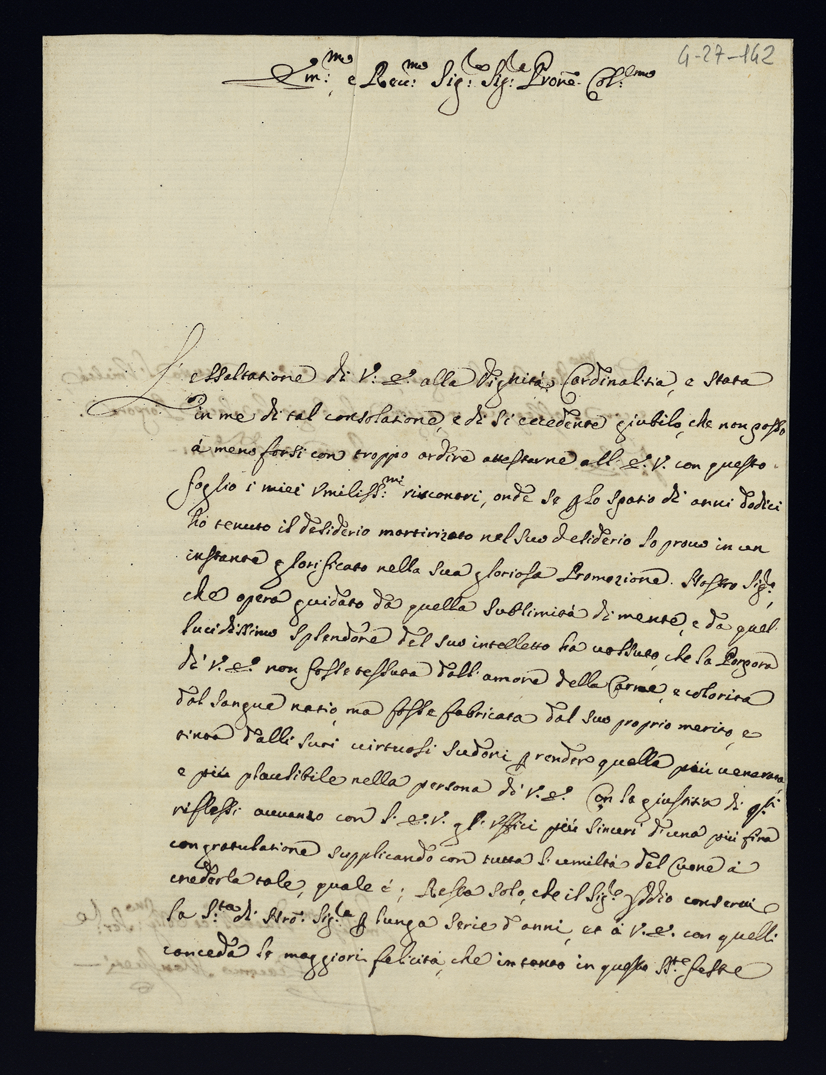 4-27-142
Em:mo e Reu:mo Sig:re Sig:re Prone Col:mo
L'essaltatione di V: E: alla Dignità Cardinalitia, e stata
in me di tal consolatione, e di si eccedente giubilo, che non posso
à meno forsi con troppo ardire attestarne all E: V: con questo
foglio i miei vmiliss:mi riscontri, onde se p lo spatio di anni dodici
hò tenuto il desiderio martirizato nel suo desiderio lo prouo in un
instante glorificato nella sua gloriosa Promozione. Nostro Sig:re,
che opera guidato da quella sublimità di mente, e da quel
lucidissimo splendore del suo intelletto ha uossuto, che la Porpora
di V: E: non fosse tessuta dall'amore della Carne, e colorita
dal sangue natio, ma fosse fabricata dal suo proprio merito, e
tinta dalli suoi uirtuosi sudori p render quella più uenerana
e più plausibile nella persona di V: E: Con la giustizia di q:sti
riflessi auuanzo con l'E: V: gl'Vffici più sinceri d'una più fina
congratulatione supplicando con tutta l'umiltà del Cuore à
crederla tale, quale è; Resta solo, che il Sig:re Iddio conserui
la S:ta di Nro: Sig:re p lunga serie d'anni, et à V: E: con quelli
conceda le maggiori felicità, che intanto in queste S:te feste